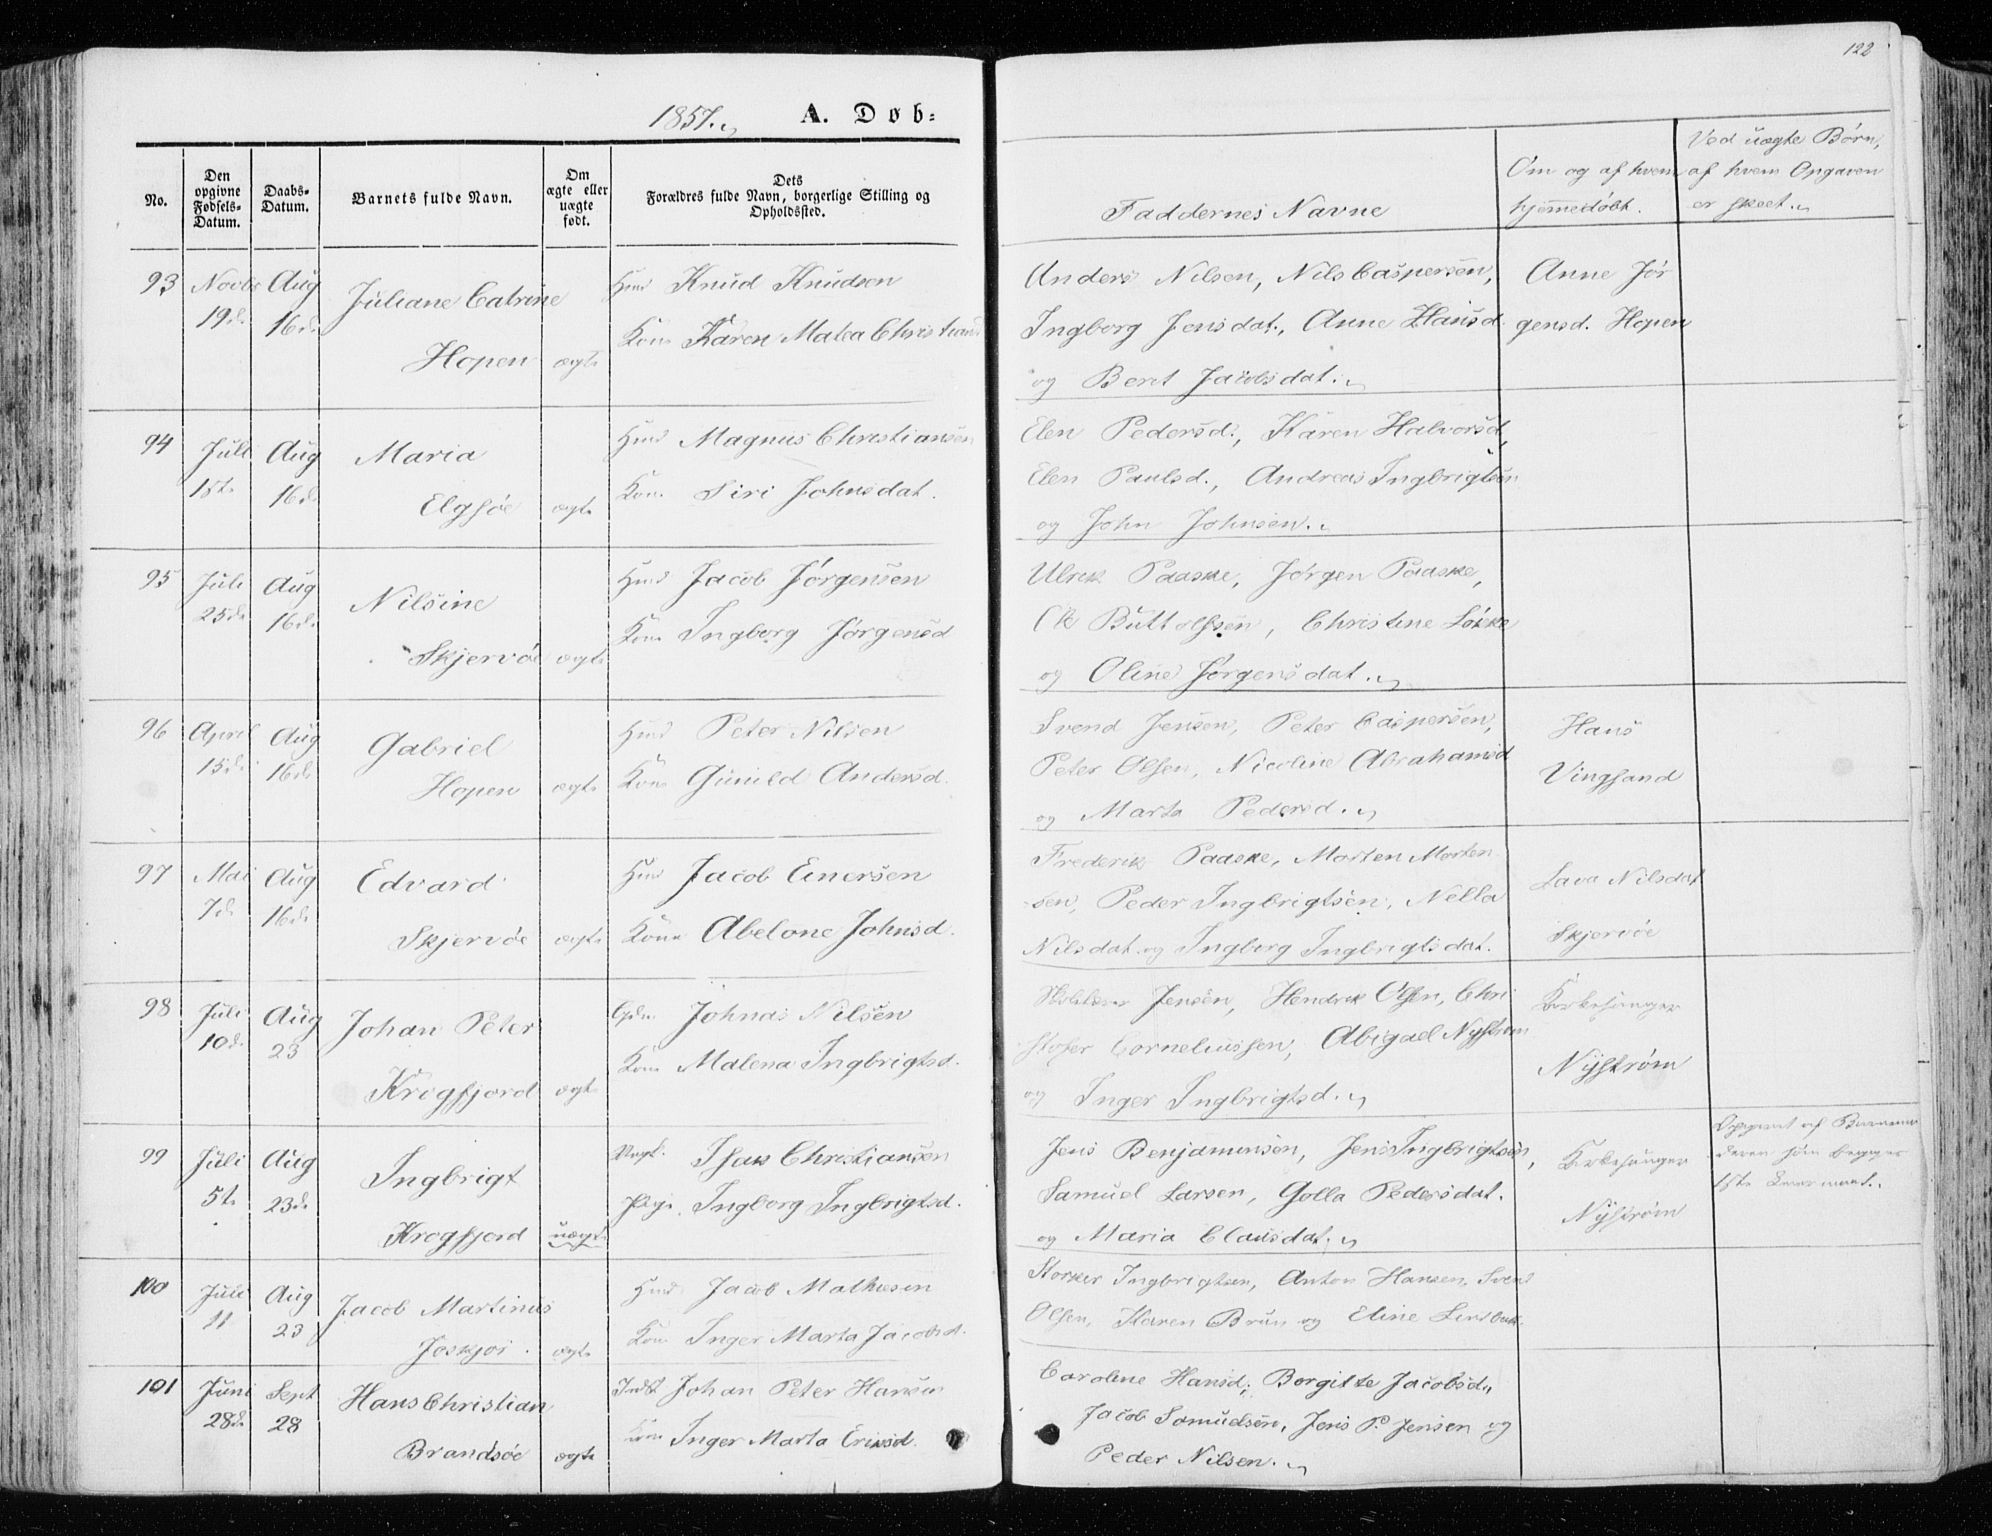 122
1857.
A. Døb:
No.
Den opgivne Fødsels-Datum.
Daabs-Datum.
Barnets fulde Navn.
Om ægte eller uægte født.
Dets Forældres fulde Navn, borgerlige Stilling og Opholdssted.
Faddernes Navne
Om og af hvem hjemmedøbt.
Ved uægte Børn, af hvem Opgaven er skeet.
93 Novbr 19d. Aug 16d. Juliane Catrine Hopen ægte
Hmd Knud Knudsen
Kone Karen Matea Christians
Anders Nilsen, Nils Caspersen,
Ingborg Jensdat., Anne Hansd.
og Berit Jacobsdat.
Anne Jør
gensd. Hopen
94 Juli 1ste Aug 16d. Maria Elgsøe ægte
Hmd Magnus Christiansen
Kone Siri Johnsdat.
Elen Pedersd., Karen Halvorsd,
Elen Paulsd., Andreas Ingbrigtsen
og John Johnsen.
95 Juli 25d. Aug 16d. Nilsine Skjervøe ægte
Hmd Jacob Jørgensen
Kone Ingborg Jørgensd
Ulrik Paaske, Jørgen Paaske,
Buttolfsen, Christine Løkke
og Oline Jørgensdat.
96 April 15d. Aug 16d. Gabriel Hopen ægte
Hmd Peter Nilsen
Kone Gunild Andersd.
Svend Jensen, Peter Caspersen,
Peter Olsen, Nicoline Abrahamsd
og Marta Pedersd.
Hans
Vingsand
97 Mai 7d. Aug 16d. Edvard Skjervøe ægte
Hmd Jacob Einersen
Kone Abelone Johnsd.
Frederik Paaske, Morten Morten
sen, Peder Ingbrigtsen, Nella
Nilsdat. og Ingborg Ingbrigtsdat.
Lava Nilsdat
Skjervøe
98 Juli 10d. Aug 23 Johan Peter Krogfjord ægte
Gdm. Johnas Nilsen
Kone Malena Ingbrigtsd.
Jensen, Hendrik Olsen, Chri
stofer Corneliussen, Abigael Nystrøm
og Inger Ingbrigtsd.
Kirkesanger
Nystrøm
99 Juli 5t. Aug 23d. Ingbrigt Krogfjord uægte
Ungk. Isak Christiansen
Pige Ingborg Ingbrigtsd.
Jens Benjaminsen, Jens Ingbrigtsen,
Samuel Larsen, Golla Pedersdat.
og Maria Clausdat.
Kirkesanger
Nystrøm
Opgivet af Barnemo
deren som begges
1ste Leiermaal.
100 Juli 11 Aug 23 Jacob Martinus Joskjor ægte
Hmd Jacob Mathiesen
Kone Inger Marta Jacobsd.
Storker Ingbrigtsen, Anton Hansen, Svend
Olsen, Karen Brun og Eline Lindbæk.
101 Juni 28d. Sept 28 Hans Christian Brandsøe ægte
Indst Johan Peter Hansen
Kone Inger Marta Eriksd.
Caroline Hansd., Borgitte Jacobsd.,
Jacob Samuelsen, Jens P. Jensen og
Peder Nilsen.